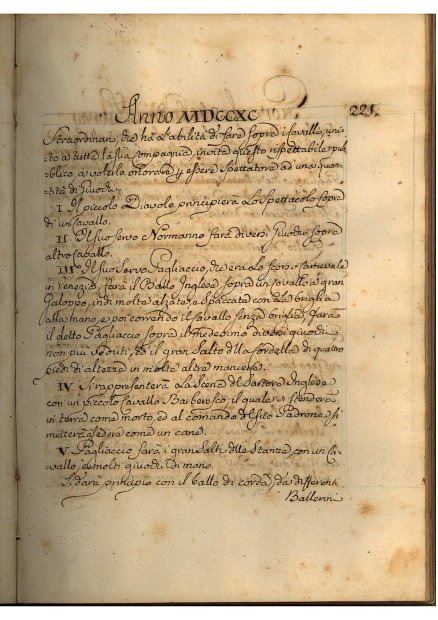 Anno MDCCXC
221.
Straordinarj, che ha l'abilità di fare sopra i Cavalli, uni-
to a tutta la sua Compagnia, invita questo rispettabile pub-
blico, a volerlo onorare, ed essere Spettatore ad una quan-
tità di Giuochi.
I. Il piccolo Diavolo principierà lo Spettacolo sopra
di un Cavallo.
II. Il suo servo Normanno farà diversi Giuochi sopra
altro Cavallo.
III. Il suo Servo Pagliaccio, che era lo scorso Carnevale
in Venezia, farà il Ballo Inglese, sopra un Cavallo a gran
Galoppo, indi molte alzate, e Spaccate con la briglia
alla mano, e poi correndo il Cavallo senza briglia, farà
il detto Pagliaccio sopra il medesimo diversi giuochi
non più veduti, ed il gran Salto della Cordella di quattro
piedi di altezza in molte altre maniere.
IV. Si rappresenterà la Scena del Sartore Inglese
con un piccolo Cavallo Barbaresco, il quale si stenderà
in terra come morto, ed al comando del suo Padrone si
metterà a sedere come un cane.
V. Pagliaccio farà i gran Salti delle Stanze con un Ca-
vallo, e molti giuochi di mano.
Si darà principio con il ballo di corda, da differenti
Ballerini